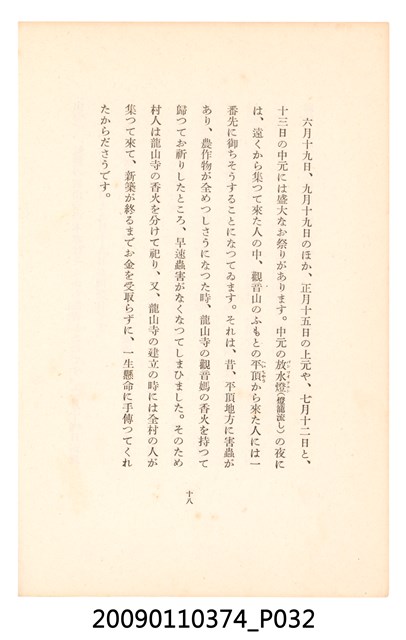 六月十九日、九月十九日のほか、正月十五日の上元や、七月十二日と、
十三日の中元には盛大なお祭りがあります。中元の放水燈(燈籠流し)の夜に
は、遠くから集つて來た人の中、觀音山のふもとの平頂から來た人には一
番先に御ちそうすることになつてゐます。それは、昔、平頂地方に害蟲が
あり、農作物が全めつしさうになつた時、龍山寺の觀音媽の香火を持つて
歸つてお祈りしたところ、早速蟲害がなくなつてしまひました。そのため
村人は龍山寺の香火を分けて祀り、又、龍山寺の建立の時には全村の人が
集つて來て、新築が終るまでお金を受取らずに、一生懸命に手傳つてくれ
たからださうです。
十八
20090110374_P032